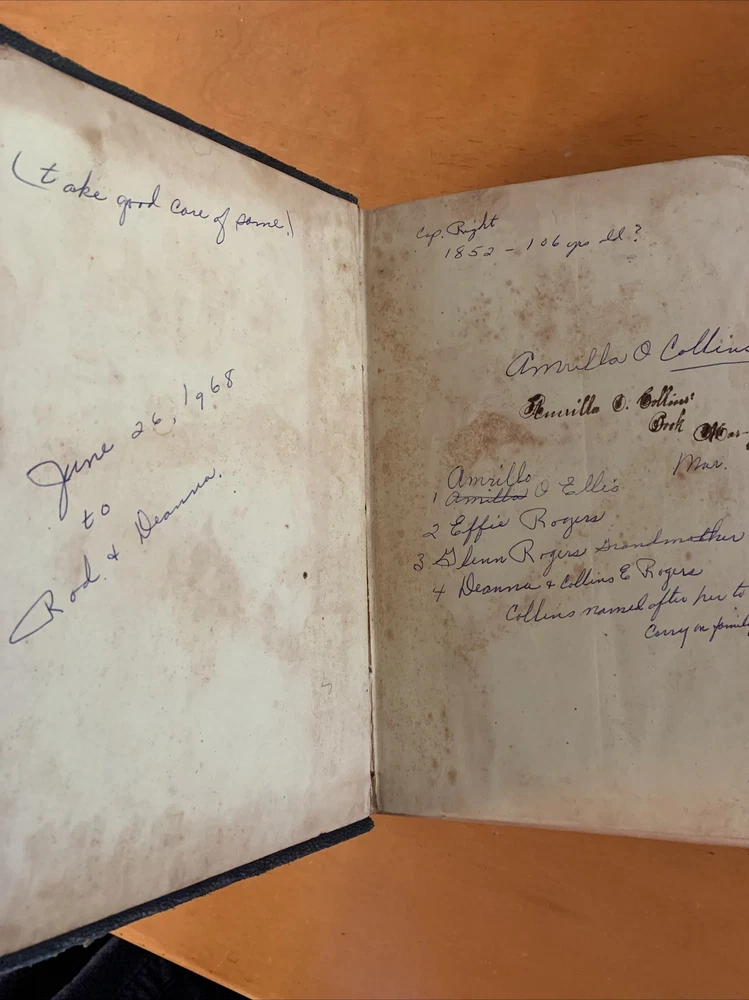 (take good care of same!
June 26, 1968
to
Rod. & Deanna.
Cop. Right
1852 - 106 yrs old?
Amrilla O Collins
Amrilla O. Collins'
Book Mar-
Mar.
Amrilla
1 Amilla O Ellis
2 Effie Rogers
3 Glenn Rogers Grandmother
4 Deanna & Collins E Rogers
Collins named after her to
Carry on family